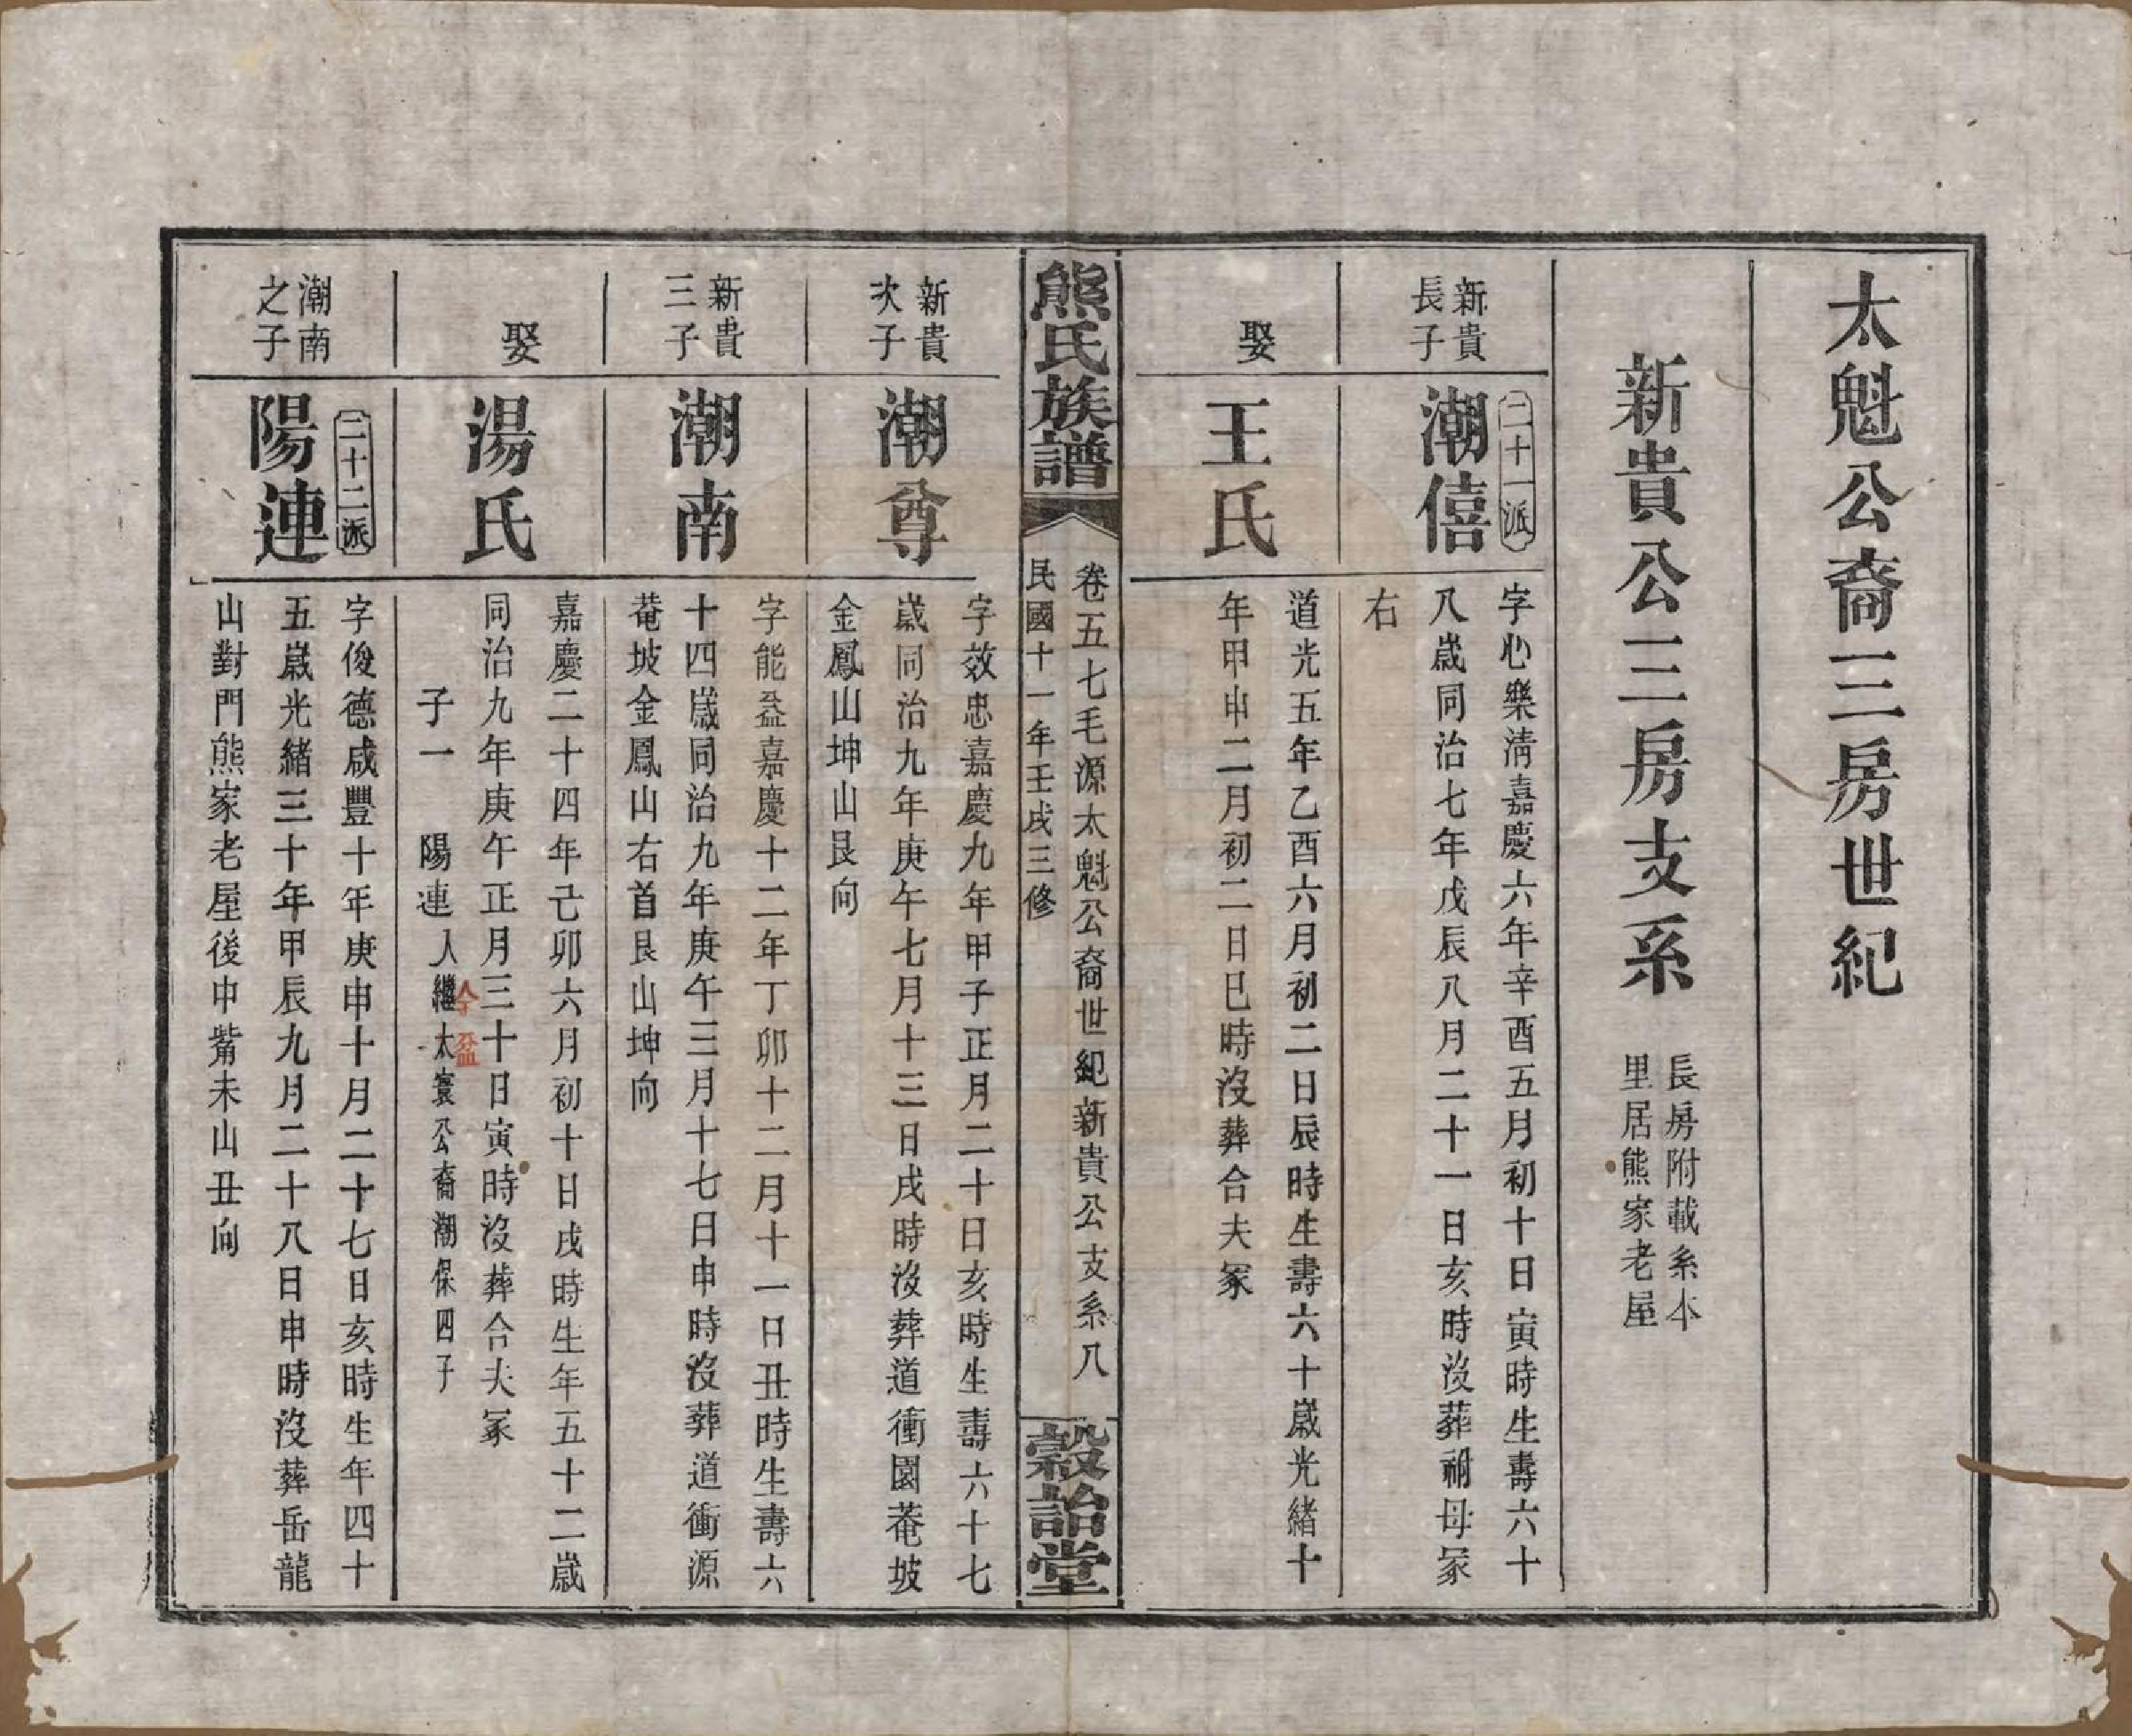 太魁公裔三房世紀
新貴公三房支系
長房附載系本
里居熊家老屋
新貴
長子
二十一派
潮僖
字心樂清嘉慶六年辛酉五月初十日寅時生壽六十
八歲同治七年戊辰八月二十一日亥時沒葬祔母冢
右
娶
王氏
道光五年乙酉六月初二日辰時生壽六十歲光緒十
年甲申二月初二日巳時沒葬合夫冢
熊氏族譜
卷五七毛源太魁公裔世紀新貴公支系八
民國十一年壬戌三修
穀詒堂
新貴
次子
潮尊
字效忠嘉慶九年甲子正月二十日亥時生壽六十七
歲同治九年庚午七月十三日戌時沒葬道衝園菴坡
金鳳山坤山艮向
新貴
三子
潮南
字能益嘉慶十二年丁卯十二月十一日丑時生壽六
十四歲同治九年庚午三月十七日申時沒葬道衝源
菴坡金鳳山右首艮山坤向
娶
湯氏
嘉慶二十四年己卯六月初十日戌時生年五十二歲
同治九年庚午正月三十日寅時沒葬合夫冢
子一 陽連人繼太寰公裔潮保四子
潮南
之子
二十二派
陽連
字俊德咸豐十年庚申十月二十七日亥時生年四十
五歲光緒三十年甲辰九月二十八日申時沒葬岳龍
山對門熊家老屋後中觜未山丑向